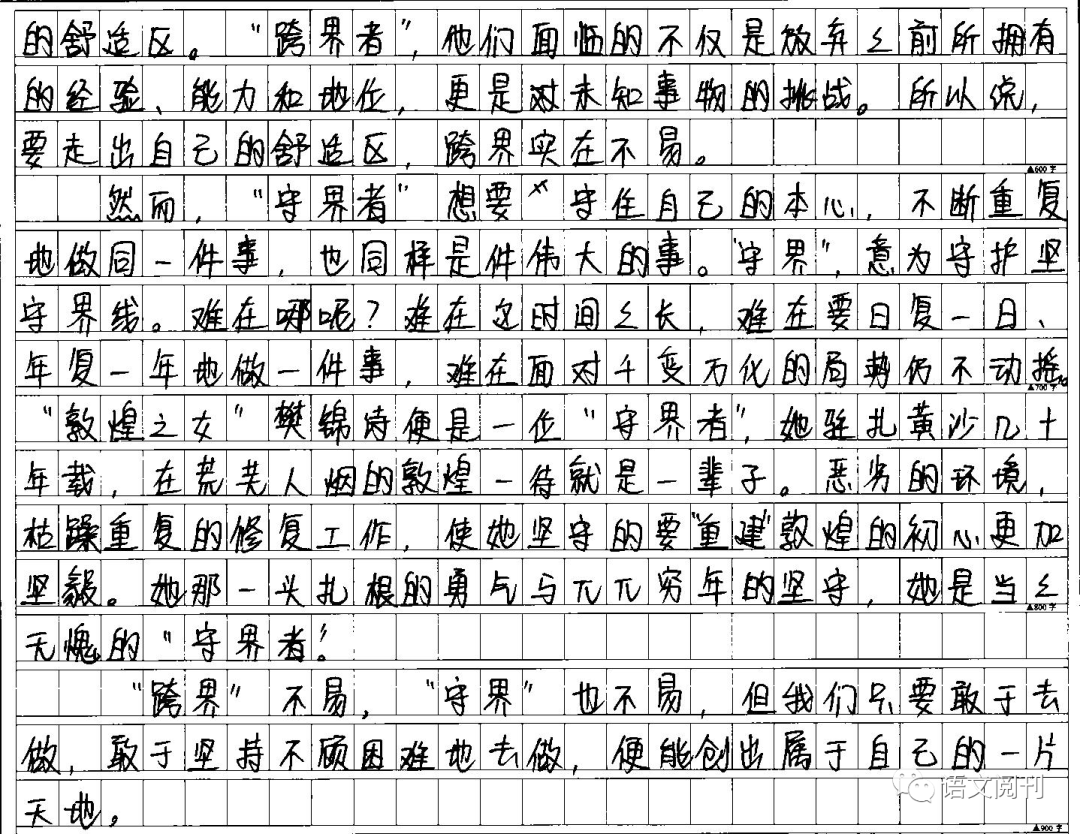 的舒适区。“跨界者”,他们面临的不仅是放弃之前所拥有
的经验、能力和地位,更是对未知事物的挑战。所以说,
要走出自己的舒适区,跨界实在不易。
▲600字
然而,“守界者”想要 守住自己的本心,不断重复
地做同一件事,也同样是件伟大的事。“守界”,意为守护坚
守界线。难在哪呢?难在这时间之长,难在要日复一日、
年复一年地做一件事,难在面对千变万化的局势仍不动摇。
▲700字
“敦煌之女”樊锦诗便是一位“守界者”,她驻扎黄沙几十
年载,在荒芜人烟的敦煌一待就是一辈子。恶劣的环境,
枯躁重复的修复工作,使她坚守的要“重建”敦煌的初心更加
坚毅。她那一头扎根的勇气与兀兀穷年的坚守,她是当之
▲800字
无愧的“守界者”!
“跨界”不易,“守界”也不易,但我们只要敢于去
做,敢于坚持不顾困难地去做,便能创出属于自己的一片
天地。
语文阅刊
▲900字